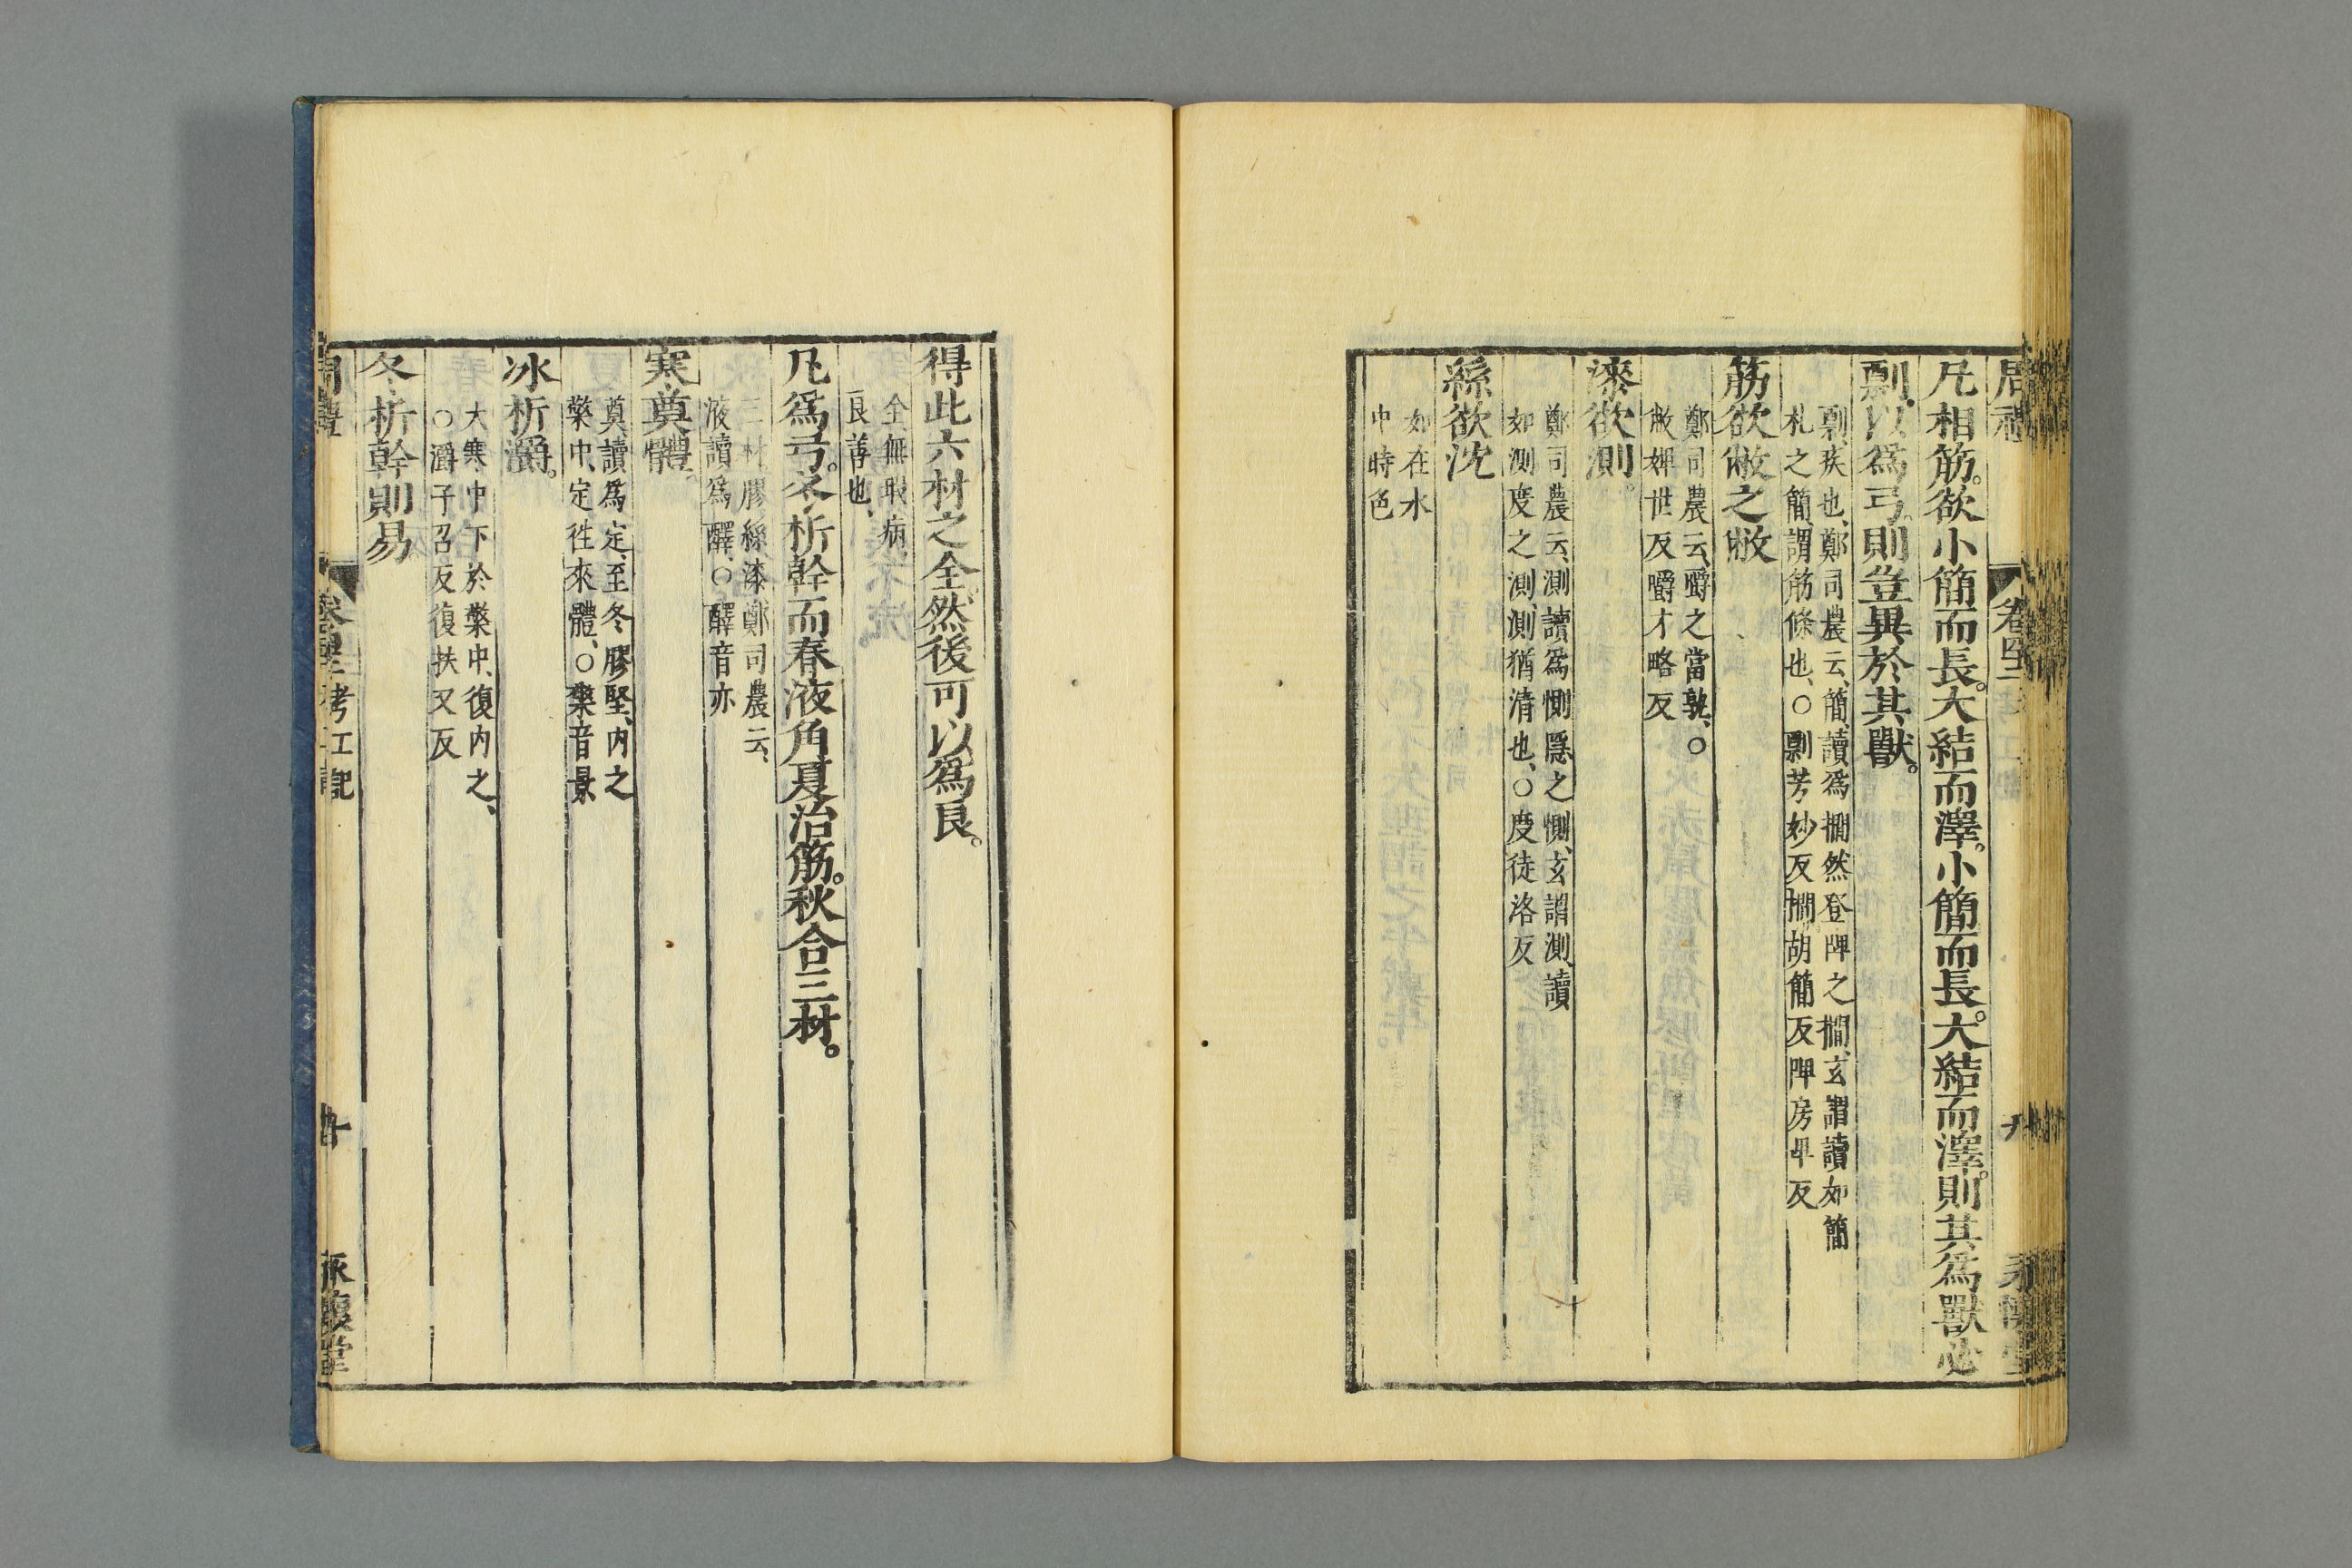 周禮 卷四十二 九
凡相筋。欲小簡而長。大結而澤。小簡而長。大結而澤。則其爲獸必
剽。以爲弓。則豈異於其獸。
剽疾也、鄭司農云、簡、讀爲撊然登陴之撊、玄謂讀如簡
札之簡、謂筋條也、○剽芳妙反撊胡簡反陴房卑反
筋欲敝之敝
鄭司農云、嚼之當孰、○
敝婢世反嚼才略反
漆欲測。
鄭司農云、測讀爲惻隱之惻、玄謂測、讀
如測度之測、測猶清也、○度徒洛反
絲欲沈
如在水
中時色
得此六材之全。然後可以爲良。
全無瑕病、
良善也、
凡爲弓。冬析幹而春液角。夏治筋。秋合三材。
三材、膠絲漆、鄭司農云、
液讀爲醳、○醳音亦
寒奠體。
奠讀爲定、至冬膠堅、內之
檠中、定往來體、○檠音景
冰析灂。
大寒中下於檠中、復內之、
○灂子召反復扶又反
冬析幹則易
周禮 卷四十二 考工記 十 永懷堂